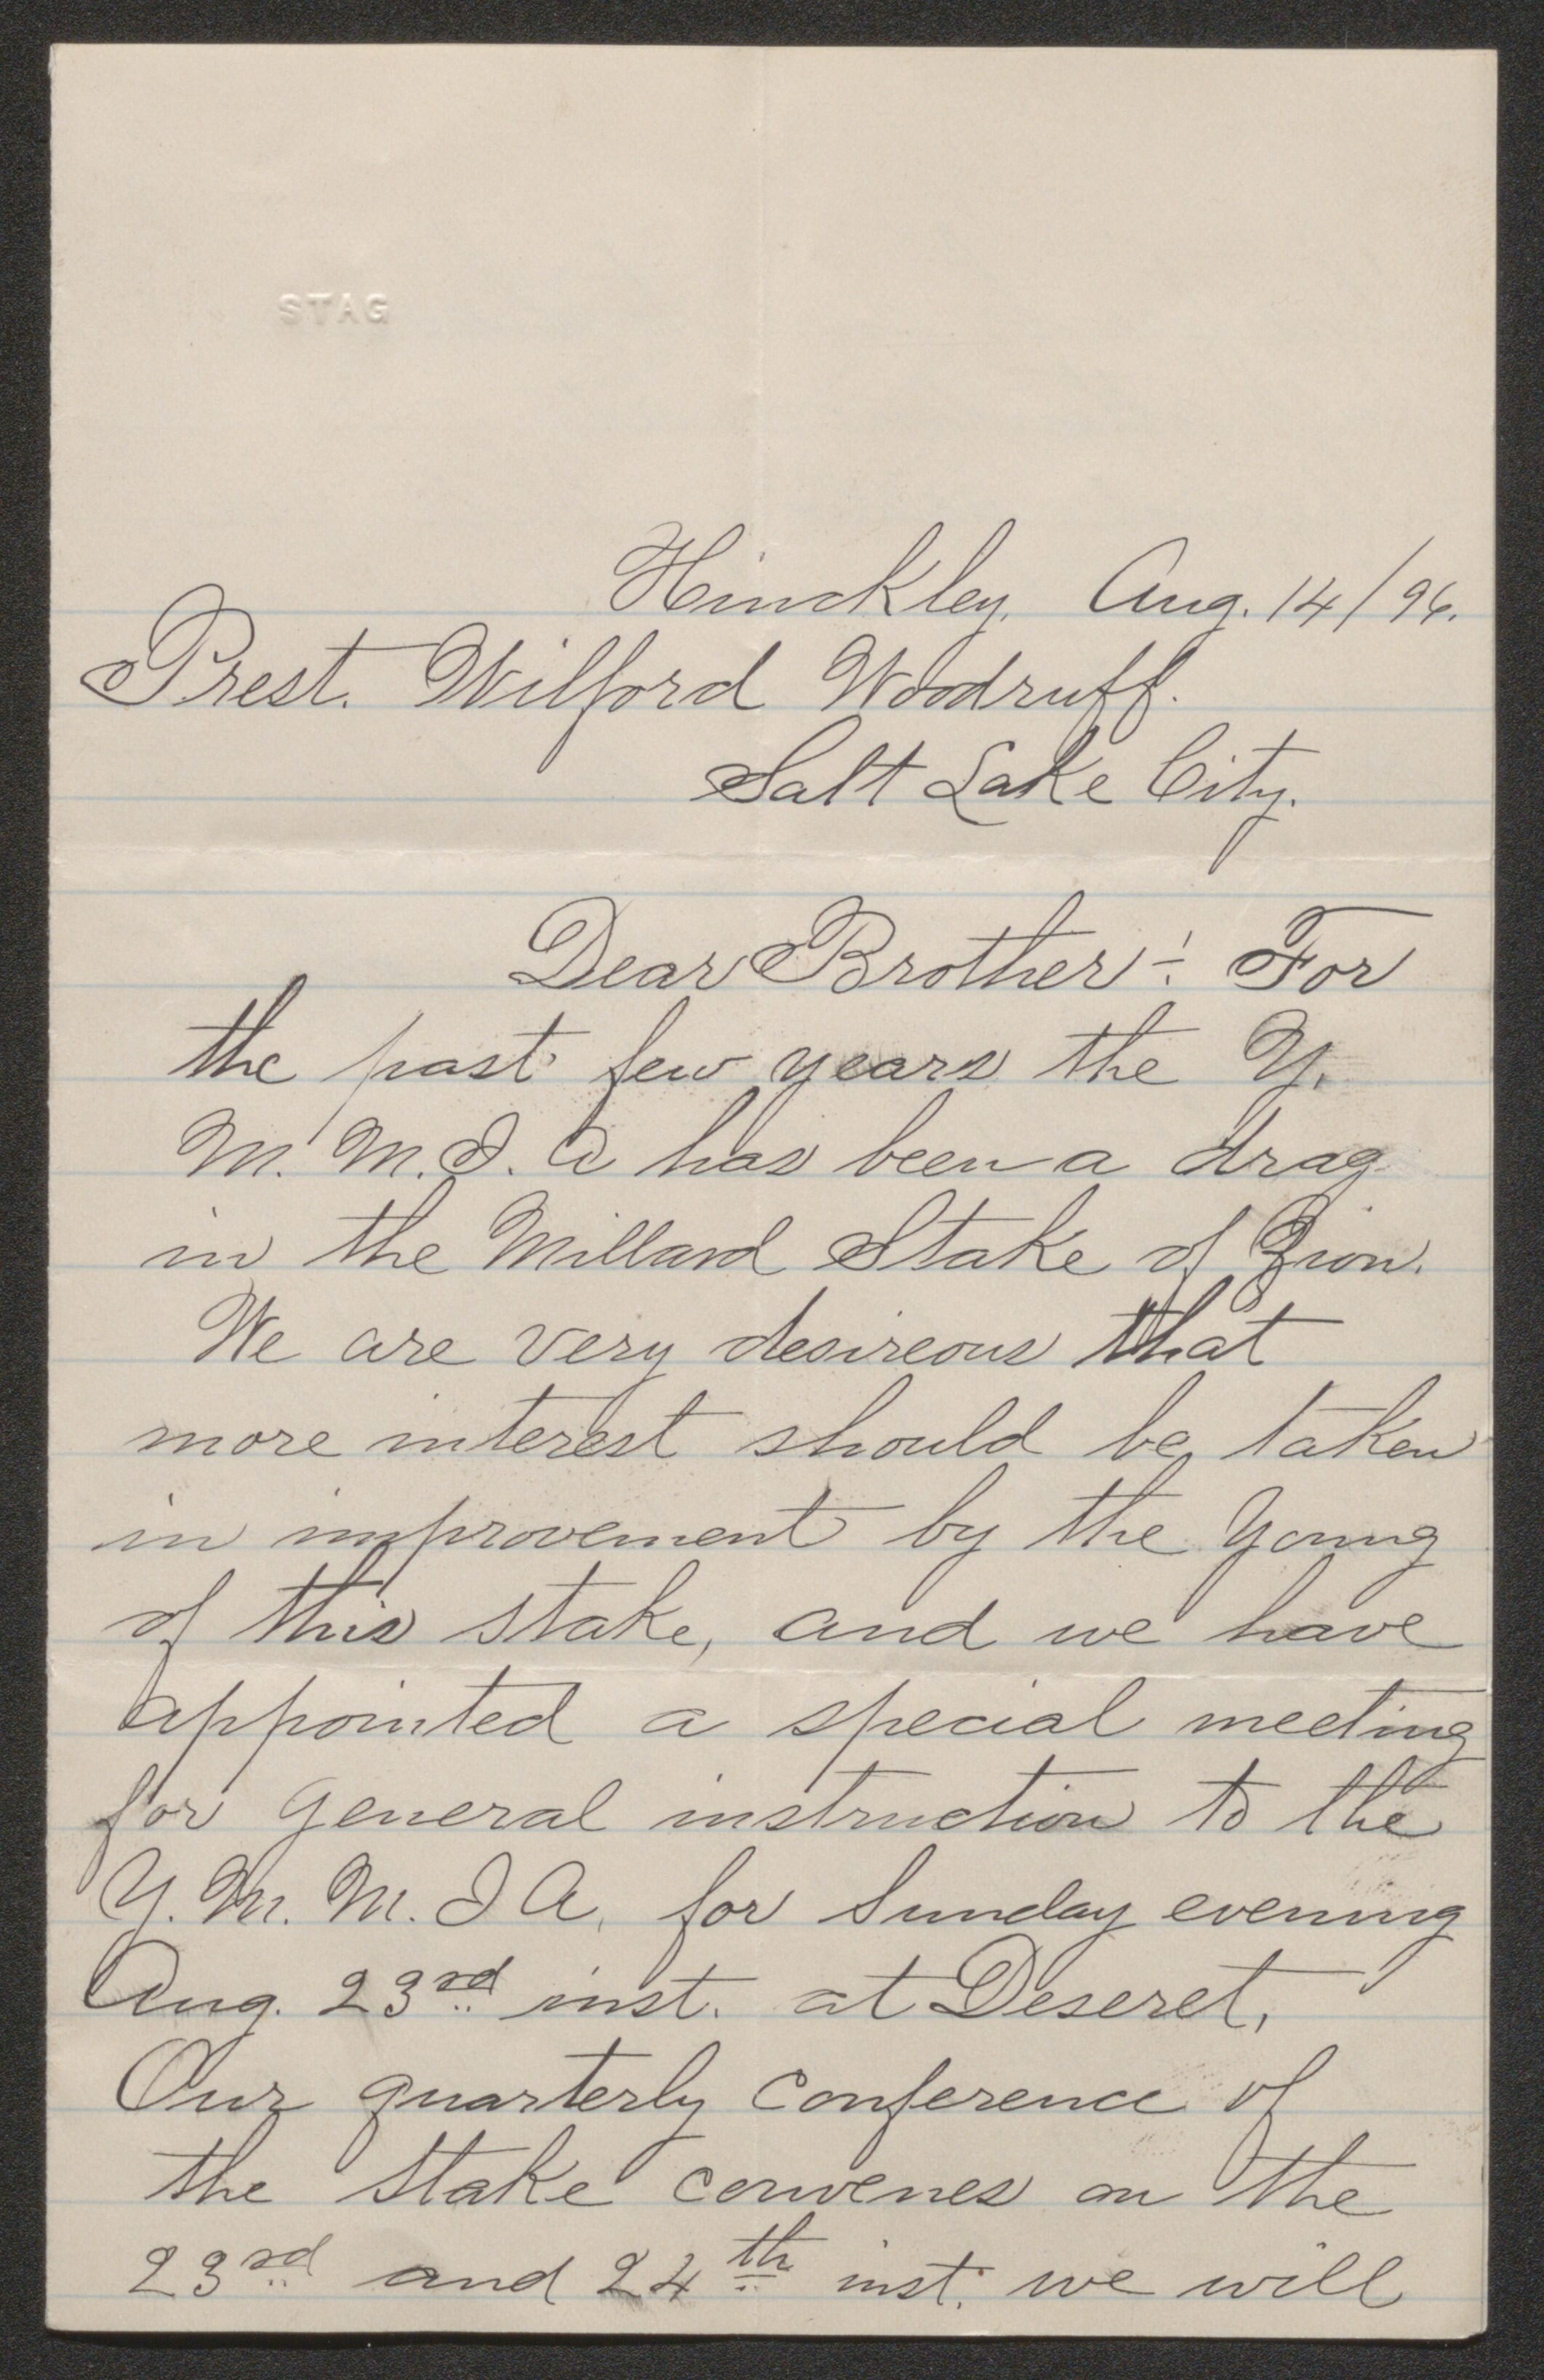 STAG
Hinckley. Aug. 14/96.
Prest. Wilford Woodruff.
Salt Lake City.
Dear Brother:- For
the past few years the Y.
M. M. I. A has been a drag
in the Millard Stake of Zion.
We are very desireous that
more interest should be taken
in improvement by the young
of this stake, and we have
appointed a special meeting
for general instruction to the
Y. M. M. I A. for Sunday evening
Aug. 23rd inst. at Deseret,
Our quarterly conference of
the Stake convenes on the
23rd and 24th inst. we will